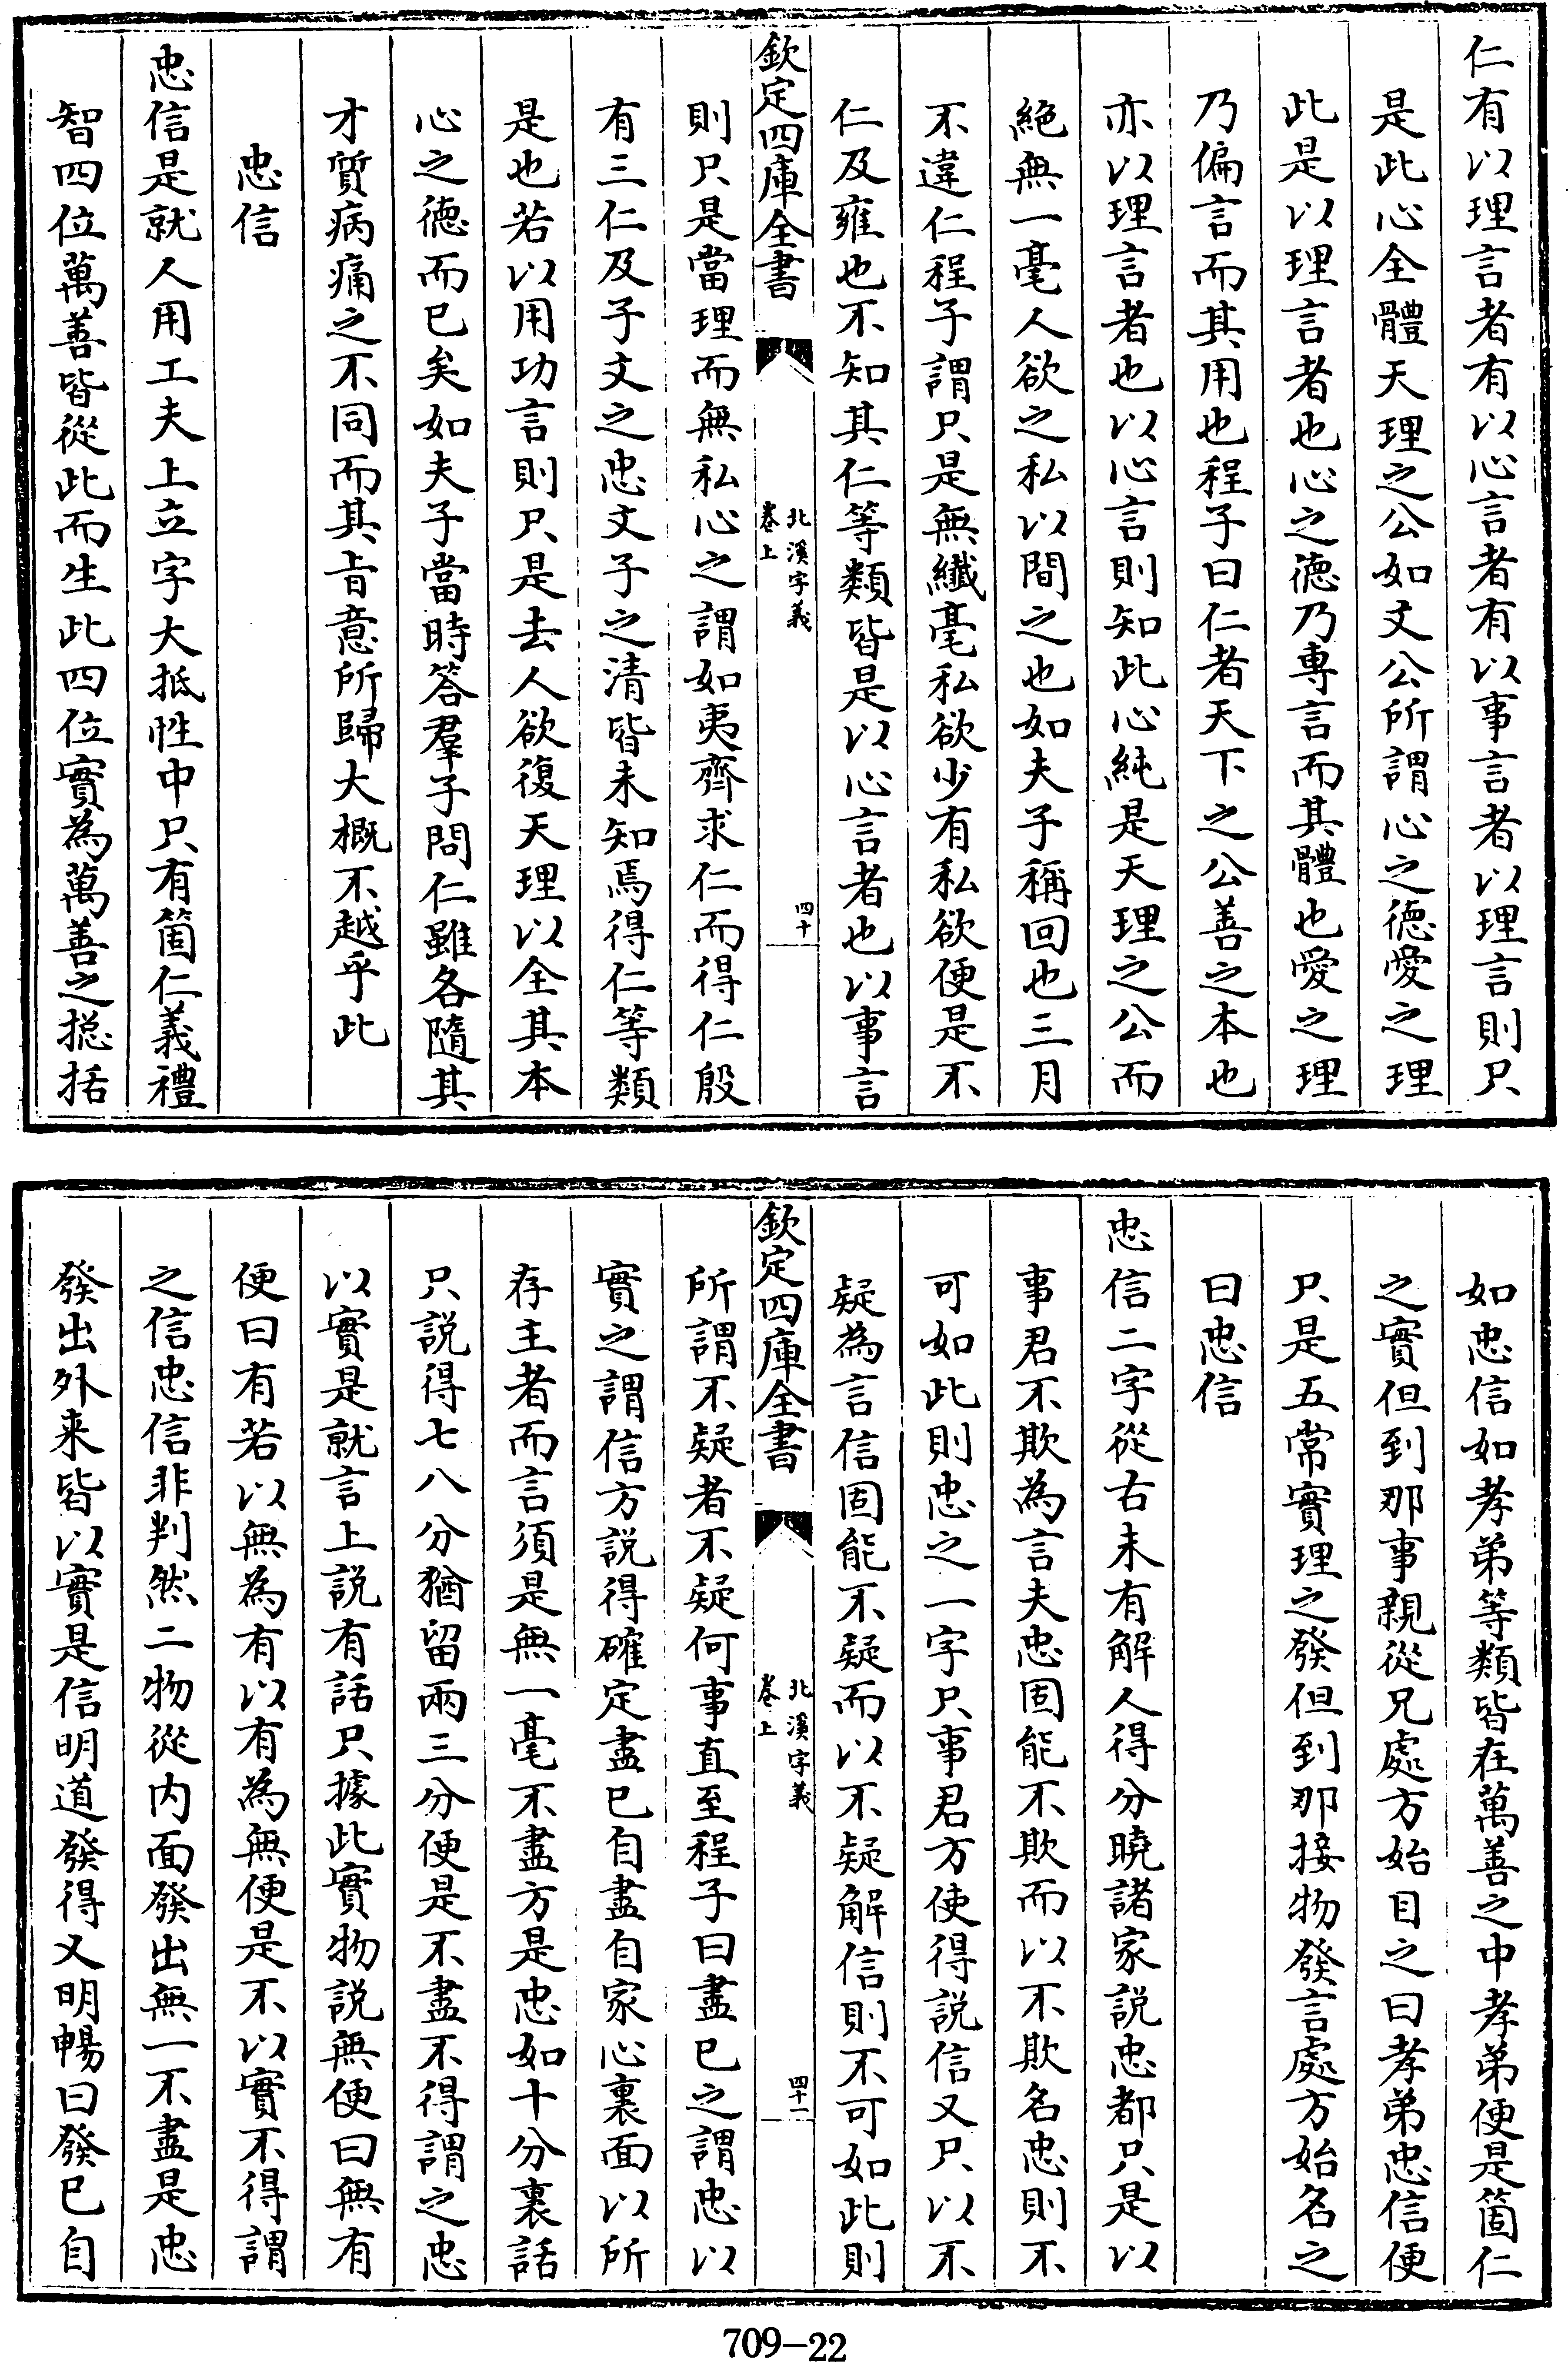 仁有以理言者有以心言者有以事言者以理言則只
是此心全體天理之公如文公所謂心之德愛之理
此是以理言者也心之德乃專言而其體也愛之理
乃偏言而其用也程子曰仁者天下之公善之本也
亦以理言者也以心言則知此心純是天理之公而
絕無一毫人欲之私以間之也如夫子稱回也三月
不違仁程子謂只是無纖毫私欲少有私欲便是不
仁及雍也不知其仁等類皆是以心言者也以事言
欽定四庫全書
北溪字義
卷上
四十
則只是當理而無私心之謂如夷齊求仁而得仁殷
有三仁及子文之忠文子之清皆未知焉得仁等類
是也若以用功言則只是去人欲復天理以全其本
心之德而已矣如夫子當時答羣子問仁雖各隨其
才質病痛之不同而其旨意所歸大概不越乎此
忠信
忠信是就人用工夫上立字大抵性中只有箇仁義禮
智四位萬善皆從此而生此四位實為萬善之揔括
如忠信如孝弟等類皆在萬善之中孝弟便是箇仁
之實但到那事親從兄處方始目之曰孝弟忠信便
只是五常實理之發但到那接物發言處方始名之
曰忠信
忠信二字從古未有解人得分曉諸家說忠都只是以
事君不欺為言夫忠固能不欺而以不欺名忠則不
可如此則忠之一字只事君方使得說信又只以不
疑為言信固能不疑而以不疑解信則不可如此則
欽定四庫全書
北溪字義
卷上
四十一
所謂不疑者不疑何事直至程子曰盡已之謂忠以
實之謂信方說得確定盡已自盡自家心裏面以所
存主者而言須是無一毫不盡方是忠如十分裏話
只說得七八分猶留兩三分便是不盡不得謂之忠
以實是就言上說有話只據此實物說無便曰無有
便曰有若以無為有以有為無便是不以實不得謂
之信忠信非判然二物從内面發出無一不盡是忠
發出外来皆以實是信明道發得又明暢曰發已自
709-22